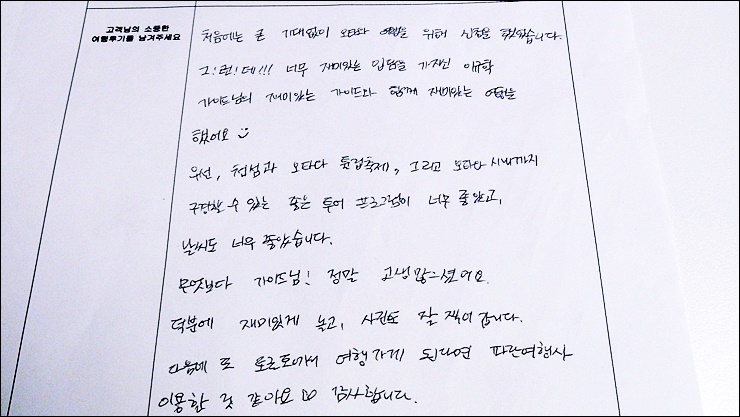 고객님의 소중한
여행후기를 남겨주세요
처음에는 큰 기대없이 오타와 여행을 위해 신청을 했었습니다.
그!런!데!!! 너무 재미있는 입담을 가지신 이규학
가이드님의 재미있는 가이드와 함께 재미있는 여행을
했어요
우선, 천섬과 오타와 튤립축제, 그리고 오타와 시내까지
구경할 수 있는 좋은 투어 프로그램이 너무 좋았고,
날씨도 너무 좋았습니다.
무엇보다 가이드님! 정말 고생많으셨어요.
덕분에 재미있게 놀고, 사진도 잘 찍어 갑니다.
다음에 또 토론토에서 여행가게 된다면 파란여행사
이용할 것 같아요 감사합니다.